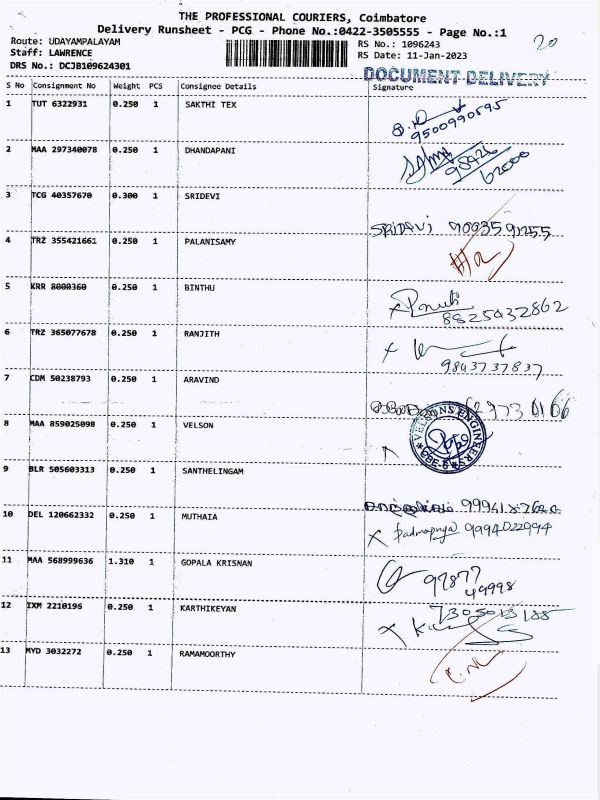 THE PROFESSIONAL COURIERS, Coimbatore
Delivery Runsheet - PCG - Phone No.:0422-3505555 - Page No.:1
Route: UDAYAMPALAYAM
Staff: LAWRENCE
DRS No.: DCJB109624301
RS No.: 1096243
RS Date: 11-Jan-2023
20
DOCUMENT DELIVERY
S No Consignment No Weight PCS Consignee Details Signature
1 TUT 6322931 0.250 1 SAKTHI TEX
9500990595
2 MAA 297340078 0.250 1 DHANDAPANI
62000
3 TCG 40357670 0.300 1 SRIDEVI
SRIDEVI
4 TRZ 355421661 0.250 1 PALANISAMY
5 KRR 8000360 0.250 1 BINTHU
8825932862
6 TRZ 365077678 0.250 1 RANJITH
9843737837
7 CDM 50238793 0.250 1 ARAVIND
8 MAA 859025098 0.250 1 VELSON
VELSONS ENGINEERS
CBE-6
9 BLR 505603313 0.250 1 SANTHELINGAM
10 DEL 120662332 0.250 1 MUTHAIA
9994022994
11 MAA 568999636 1.310 1 GOPALA KRISNAN
97877
49998
12 IXM 2210196 0.250 1 KARTHIKEYAN
13 MYD 3032272 0.250 1 RAMAMOORTHY